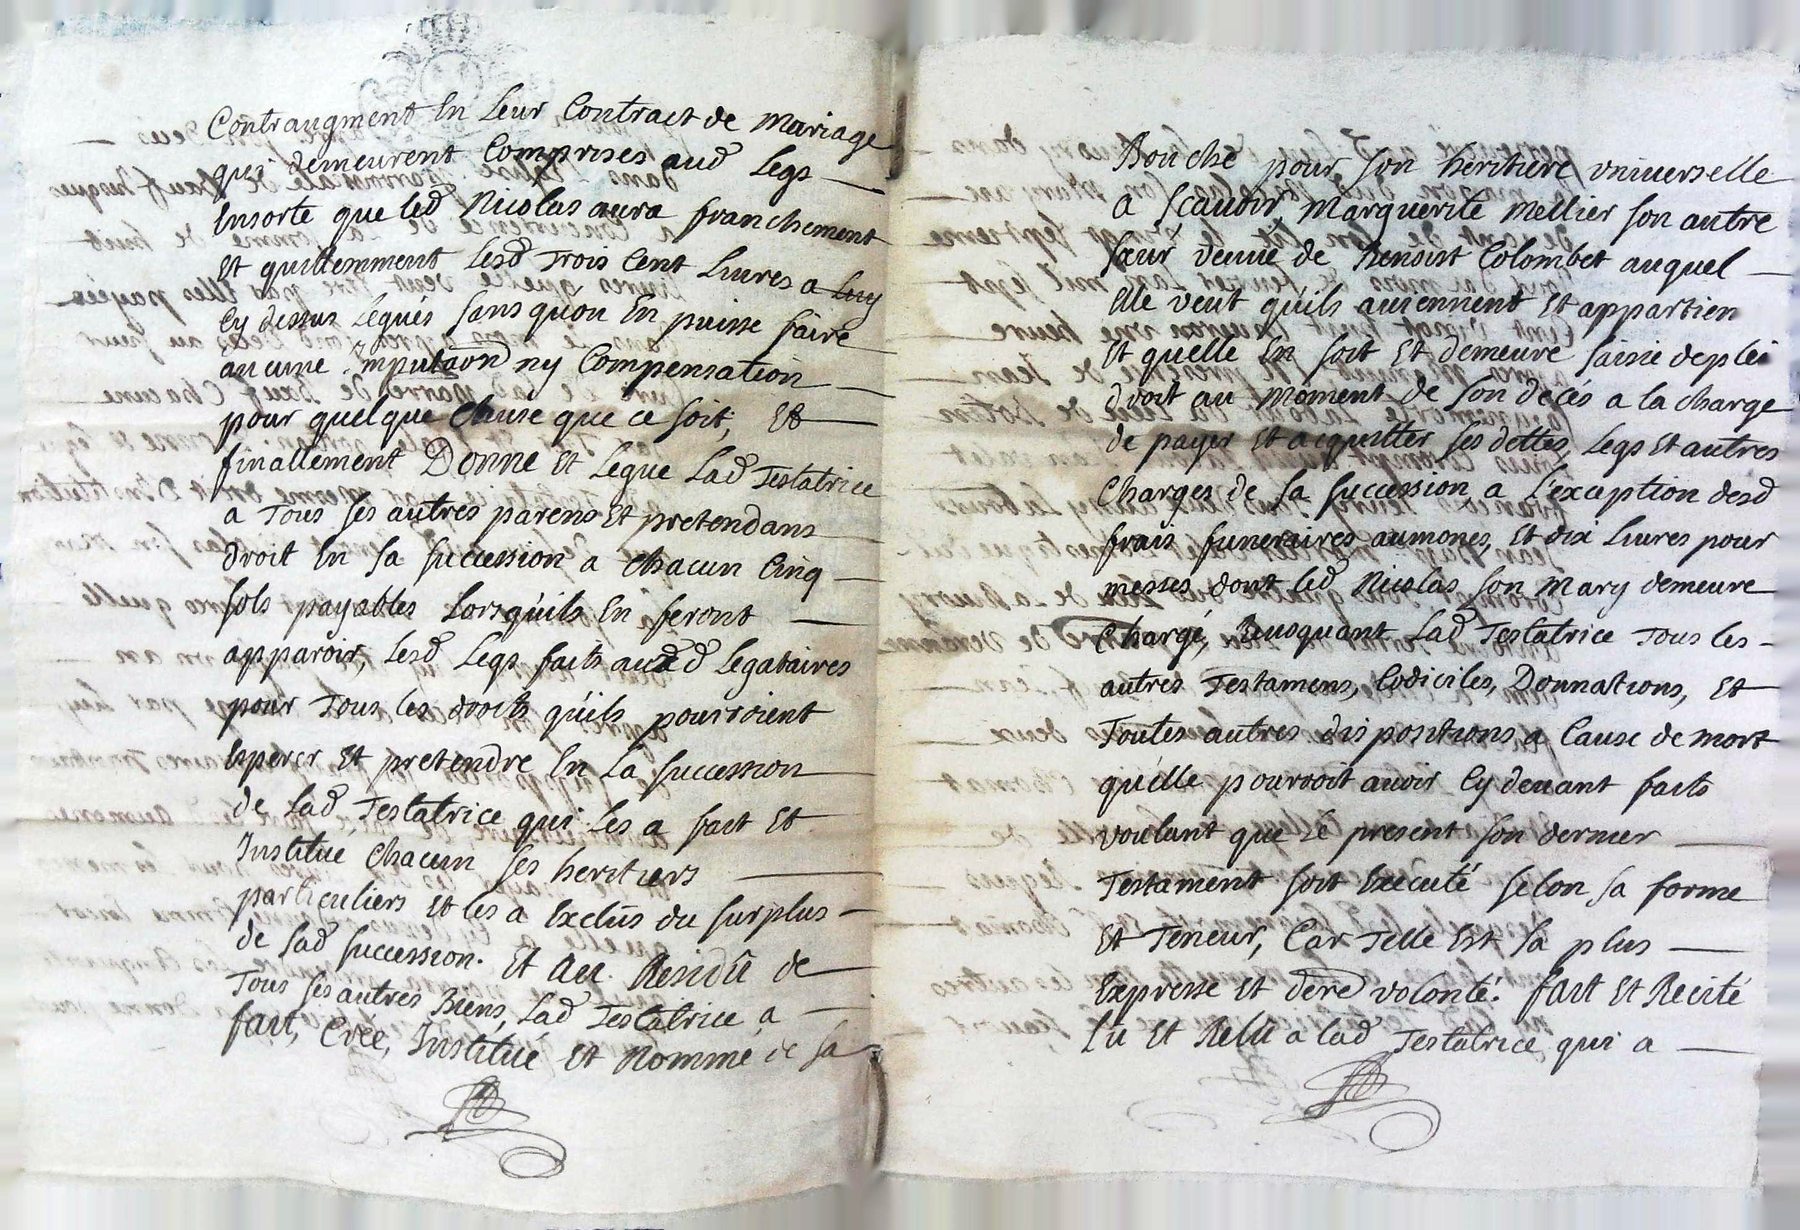 Contraugment En Leur Contract de Mariage
qui demeurent Comprises aud Legs
Ensorte que led Nicolas aura franchement
Et quittemment Lesd Trois Cent Livres a Luy
Cy dessus Legués sans quon En puisse faire
aucune Imputaon ny Compensation
pour quelque Clause que ce soit, Et
finallement Donne Et Legue Lad Testatrice
a Tous ses autres parens Et pretendans
droit En sa succession a Chacun Cinq
sols payables Lorsqu'ils En feront
apparoir, Lesd Legs faits auxd Legataires
pour Tous les droits qu'ils pourroient
Esperer Et pretendre En La succession
de Lad Testatrice qui Les a fait Et
Institué Chacun ses heritiers
particuliers Et les a Exclus du surplus
de Lad succession. Et Au Residû de
Tous ses autres Biens, Lad Testatrice a
fait, Créé, Institué Et Nommé de sa
Bouche pour son héritiere Universelle
a Scavoir, Marguerite Mellier son autre
sœur veuve de Benoist Colombet auquel
Elle veut qu'ils auiennent Et appartien
Et quelle En soit Et demeure saisie de plei
droit au moment de son décés a la charge
de payer Et acquitter ses dettes, Legs Et autres
Charges de sa succession a L'exception desd
frais funeraires aumones, Et dix Livres pour
messes dont led Nicolas son Mary demeure
Chargé, Revoquant Lad Testatrice Tous les
autres Testamens, Codiciles, Donnations, Et
Toutes autres dispositions a Cause de mort
qu'elle pourroit avoir Cy devant faits
voulant que Le present son dernier
Testament soit Executé selon sa forme
Et Teneur, Car Telle Est sa plus
Expresse Et dere volonté. fait Et Recité
Lu Et Relû a lad Testatrice qui a